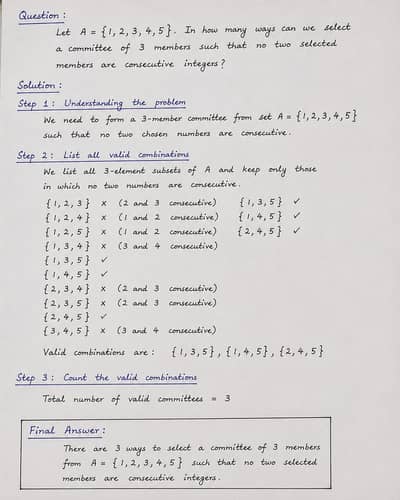 Question :
Let A = { 1, 2, 3, 4, 5 }. In how many ways can we select
a committee of 3 members such that no two selected
members are consecutive integers ?
Solution :
Step 1 : Understanding the problem
We need to form a 3-member committee from set A = { 1, 2, 3, 4, 5 }
such that no two chosen numbers are consecutive.
Step 2 : List all valid combinations
We list all 3-element subsets of A and keep only those
in which no two numbers are consecutive.
{ 1, 2, 3 } x (2 and 3 consecutive) { 1, 3, 5 } ✓
{ 1, 2, 4 } x (1 and 2 consecutive) { 1, 4, 5 } ✓
{ 1, 2, 5 } x (1 and 2 consecutive) { 2, 4, 5 } ✓
{ 1, 3, 4 } x (3 and 4 consecutive)
{ 1, 3, 5 } ✓
{ 1, 4, 5 } ✓
{ 2, 3, 4 } x (2 and 3 consecutive)
{ 2, 3, 5 } x (2 and 3 consecutive)
{ 2, 4, 5 } ✓
{ 3, 4, 5 } x (3 and 4 consecutive)
Valid combinations are : { 1, 3, 5 } , { 1, 4, 5 } , { 2, 4, 5 }
Step 3 : Count the valid combinations
Total number of valid committees = 3
Final Answer :
There are 3 ways to select a committee of 3 members
from A = { 1, 2, 3, 4, 5 } such that no two selected
members are consecutive integers.